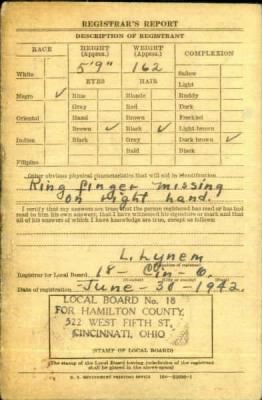 REGISTRAR'S REPORT
DESCRIPTION OF REGISTRANT
RACE HEIGHT (Approx.) WEIGHT (Approx.) COMPLEXION
5'9" 162
White Sallow
EYES HAIR Light
Negro ✓ Blue Blonde Ruddy
Gray Red Dark
Oriental Hazel Brown Freckled
Brown ✓ Black ✓ Light brown
Indian Black Gray Dark brown ✓
Bald Black
Filipino
Other obvious physical characteristics that will aid in identification
Ring finger missing
on right hand.
I certify that my answers are true; that the person registered has read or has had
read to him his own answers; that I have witnessed his signature or mark and that
all of his answers of which I have knowledge are true, except as follows:
L. Lynem
Registrar for Local Board 18 - Cin - O.
Date of registration June - 30 - 1942.
LOCAL BOARD No. 18
FOR HAMILTON COUNTY,
522 WEST FIFTH ST.
CINCINNATI, OHIO
(STAMP OF LOCAL BOARD)
(The stamp of the Local Board having jurisdiction of the registrant
shall be placed in the above space)
U. S. GOVERNMENT PRINTING OFFICE